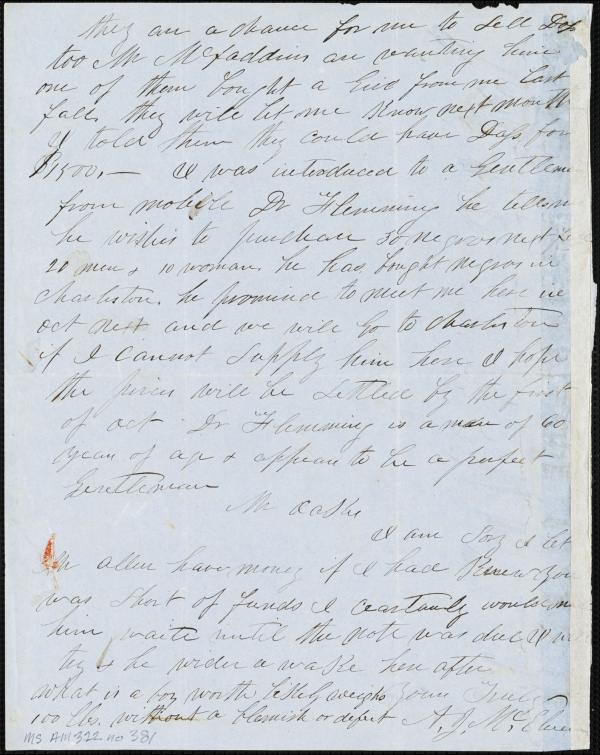 they are a chance for me to sell Daph
too Mr McFaddins are wanting him
one of them bought a Girl from me last
fall they will let me Know next month
I told them they could have Daph for
$1500.— I was introduced to a Gentleman
from mobile Dr Flemming he tells me
he wishes to purchase 30 negros next
20 men & 10 woman. he has bought negros in
Charleston. he promised to meet me here in
oct next and we will Go to Charleston
if I cannot Supply him here I hope
the prices will be Settled by the first
of oct Dr Flemming is a man of 60
years of age & appears to be a perfect
Gentleman
Mr Oakes
I am Sory I let
Mr allen have money if I had Knew you
was Short of funds I ceartainly would
him waite until the note was due I will
try & be wider awake here after
what is a boy worth likely weighs Yours Truly
100 lbs. without a blemish or defect A. J. McElveen
MS AM 322 no 38/